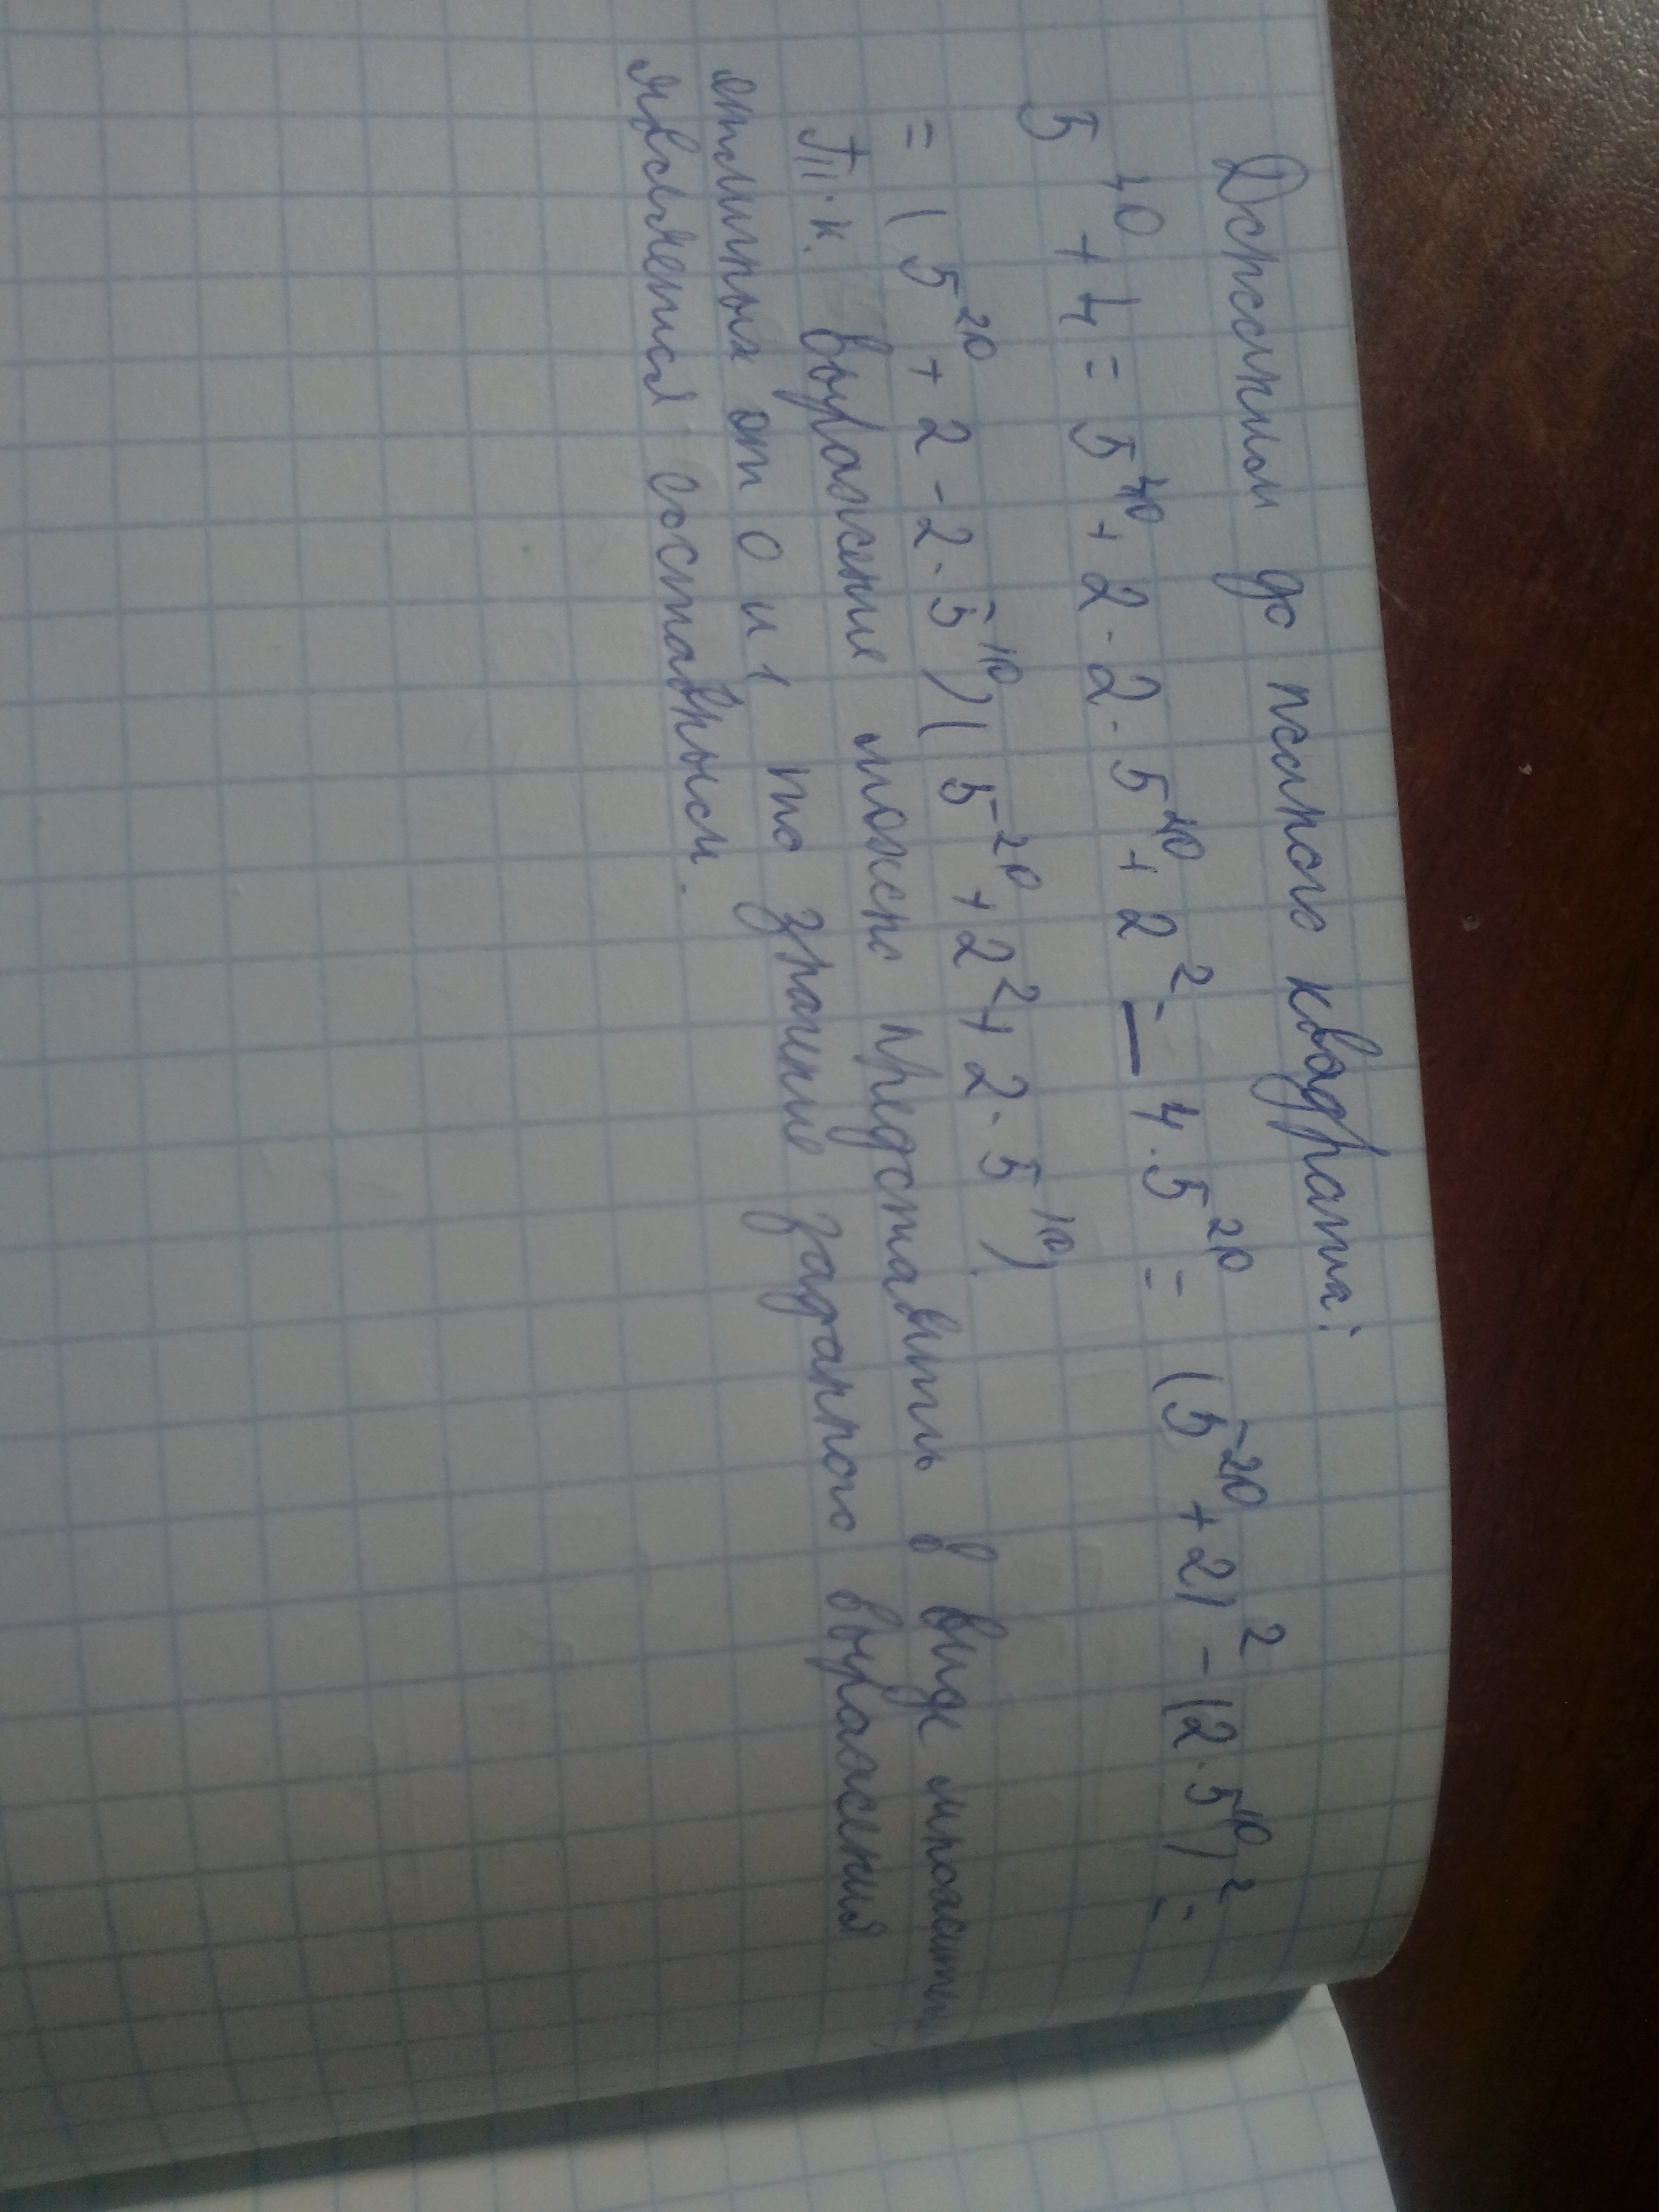 Дополним до полного квадрата:
5^40 + 4 = 5^40 + 2 · 2 · 5^20 + 2^2 — 4 · 5^20 = (5^20 + 2)^2 - (2 · 5^10)^2 =
= (5^20 + 2 - 2 · 5^10)(5^20 + 2^2 + 2 · 5^10)
Т.к. выражение можно представить в виде множителей
отличных от 0 и 1 то значение заданного выражения
является составным.